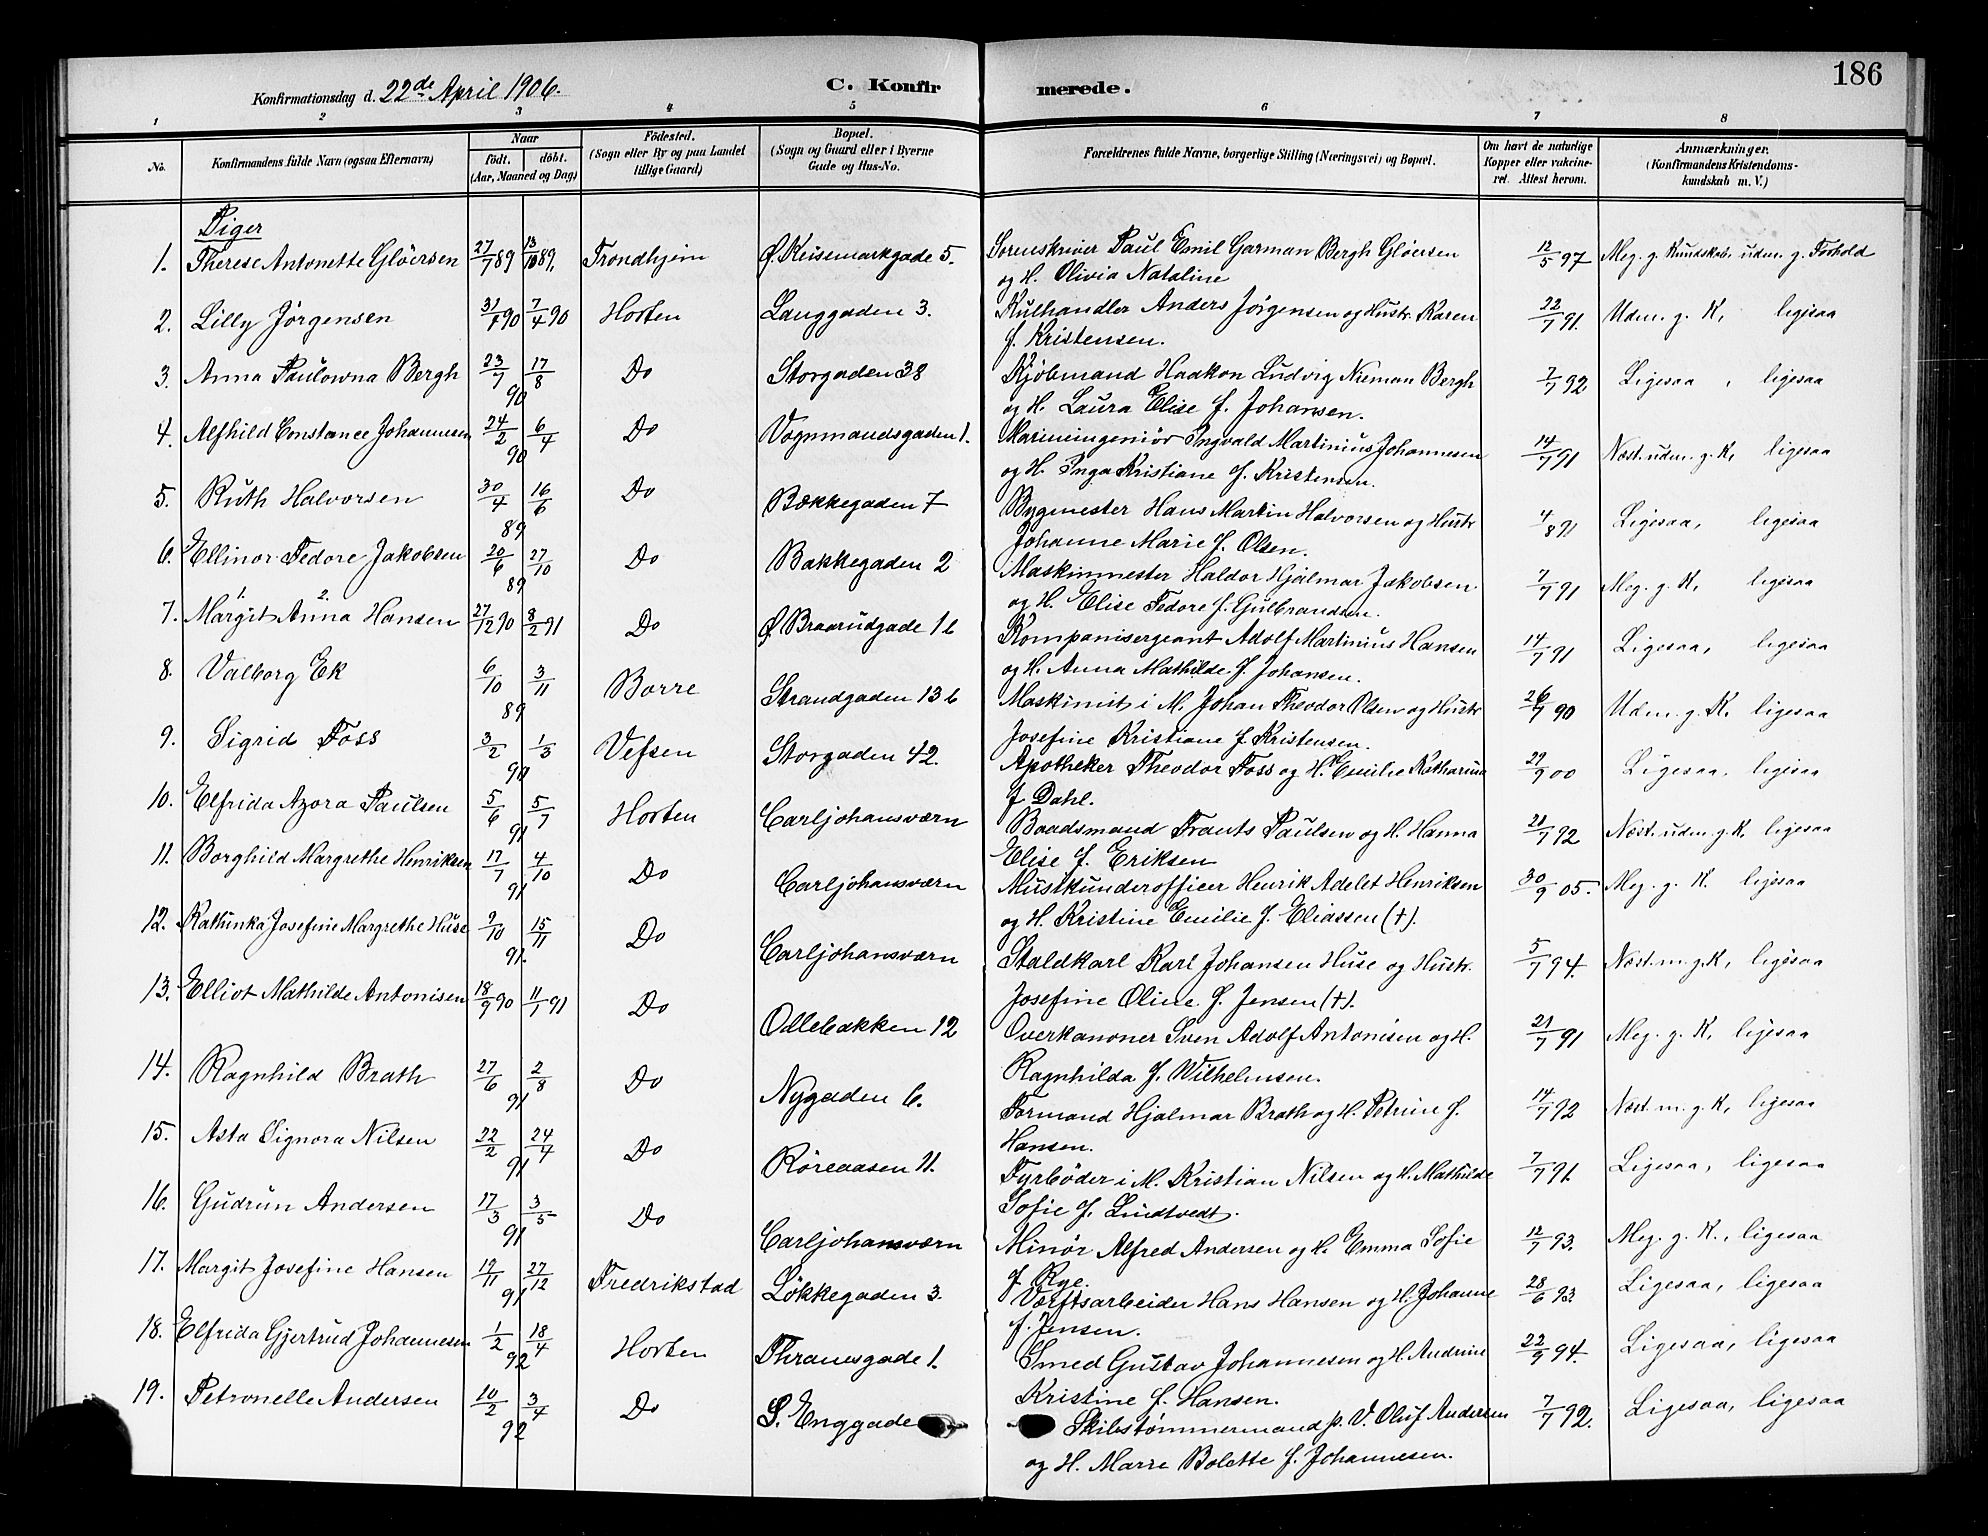 186
Konfirmationsdag d. 22de April 1906.
C. Konfirmerede.
1 2 3 4 5 6 7 8
No. Konfirmandens fulde Navn (ogsaa Efternavn) Naar födt. döbt. (Aar, Maaned og Dag) Födested. (Sogn eller By og paa Landet tillige Gaard) Bopæl. (Sogn og Gaard eller i Byerne Gade og Hus-No. Forældrenes fulde Navne, borgerlige Stilling (Næringsvei) og Bopæl. Om havt de naturlige Kopper eller vakcineret. Attest herom. Anmærkninger. (Konfirmandens Kristendomskundskab m. V.)
Piger
1. Therese Antonette Glöersen 27/7 89 13/10 89. Trondhjem Ø. Keisemarkgade 5. Sorenskriver Paul Emil Garman Bergh Glöersen 12/5 97 Meg. g. Kundskab, udm. g. Forhold
og H. Olivia Nataline
2. Lilly Jörgensen 31/1 90 7/4 90 Horten Langgaden 3. Kulhandler Anders Jörgensen og Hustr. Karen 22/7 91. Udm. g. K, ligesaa
f. Kristensen.
3. Anna Paulowna Bergh 23/7 17/8 90 Do Storgaden 38 Kjöbmand Haakon Ludvig Nieman Bergh 7/7 92 Ligesaa, ligesaa
og H. Laura Elise f. Johansen.
4. Alfhild Constance Johannesen 24/2 6/4 90 Do Vognmandsgaden 1. Marineingeniör Ingvald Martinius Johannesen 14/7 91 Næst. udm. g. K, ligesaa
og H. Inga Kristiane f. Kristensen.
5. Ruth Halvorsen 30/4 16/6 89 Do Bækkegaden 7 Bygmester Hans Martin Halvorsen og Hustr 4/8 91 Ligesaa, ligesaa
Johanne Marie f. Olsen.
6. Ellinor Fedore Jakobsen 20/6 27/10 89 Do Bakkegaden 2 Maskinmester Haldor Hjalmar Jakobsen 7/7 91 Meg. g. K, ligesaa
og H. Elise Fedore f. Gulbrandsen.
7. Margit Anna Hansen 27/12 90 8/2 91 Do Ø. Braarudgade 1 b Kompanisergeant Adolf Martinius Hansen 14/7 91 Ligesaa, ligesaa
og H. Anna Mathilde f. Johansen.
8. Valborg Ek 6/10 3/11 89 Borre Strandgaden 13 b Maskinist i M. Johan Theodor Olsen og Hustr 26/7 90 Udm. g. K. ligesaa
Josefine Kristiane f. Kristensen.
9. Sigrid Foss 3/2 1/3 90 Vefsen Storgaden 42. Apotheker Theodor Foss og H. Emilie Katharina 27/9 00 Ligesaa, ligesaa
f Dahl.
10. Elfrida Azora Paulsen 5/6 5/7 91 Horten Carljohansværn Baadsmand Frants Paulsen og H. Hanna 21/7 92 Næst. udm. g. K. ligesaa
Elise f. Eriksen
11. Borghild Margrethe Henriksen 17/7 4/10 91 Do Carljohansværn Musikunderofficer Henrik Adelet Henriksen 30/9 05. Meg. g. K. ligesaa
og H. Kristine Emilie f. Eliassen (†).
12. Kathinka Josefine Margrethe Huse 9/10 15/11 91. Do Carljohansværn Staldkarl Karl Johansen Huse og Hustr. 5/7 94. Næst. m. g. K, ligesaa
Josefine Oline f. Jensen (†).
13. Elliot Mathilde Antonisen 18/9 90 11/1 91 Do Ollebakken 12 Overkanoner Sven Adolf Antonisen og H. 21/7 91 Meg. g. K, ligesaa
Ragnhilda f. Wilhelmsen.
14. Ragnhild Brath 27/6 2/8 91 Do Nygaden 6. Formand Hjalmar Brath og H. Petrine f. 14/7 92 Næst. m. g. K, ligesaa
Hansen.
15. Asta Signora Nilsen 22/2 24/4 91 Do Röreaasen 11. Fyrböder i M. Kristian Nilsen og H. Mathilde 7/7 91. Ligesaa, ligesaa
Sofie f. Lindtvedt.
16. Gudrun Andersen 17/3 3/5 91 Do Carljohansværn Minör Alfred Andersen og H. Emma Sofie 12/7 93. Meg. g. K., ligesaa
f Rye.
17. Margit Josefine Hansen 19/11 27/12 91 Fredrikstad Løkkegaden 3. Værftsarbeider Hans Hansen og H. Johanne 28/6 93. Ligesaa, ligesaa
f. Jensen.
18. Elfrida Gjertrud Johannesen 1/2 18/4 92 Horten Thranesgade 1. Smed Gustav Johannesen og H. Andrine 22/9 94. Ligesaa, ligesaa
Kristine f. Hansen.
19. Petronelle Andersen 10/2 3/4 92 Do S. Enggade Skibstømmermand p. V. Oluf Andersen 7/7 92. Ligesaa, ligesaa
og H. Marie Bolette f. Johannesen.